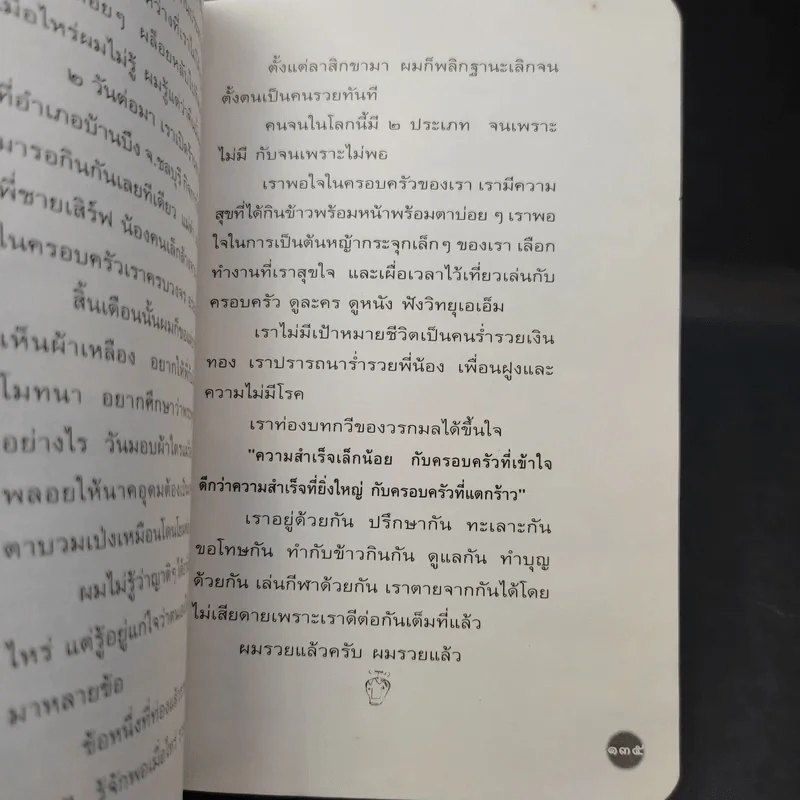 ว่างที่เราใน
อยๆ ผล็อยหลับไป
เมื่อไหร่ผมไม่รู้ ผมรู้แต่ว่า
๒ วันต่อมา เราเปิดร้าน
ที่อำเภอบ้านบึง จ.ชลบุรี
มารอกินกันเลยทีเดียว
พี่ชายเสิร์ฟ น้องคนเล็กล้าง
ในครอบครัวเราครบวงจร
สิ้นเดือนนั้นผมก็ขอ
เห็นผ้าเหลือง อยากให้
โมทนา อยากศึกษาว่า
อย่างไร วันมอบผ้าไตร
พลอยให้นาคอุดมต้อง
ตาบวมเป่งเหมือนโดน
ผมไม่รู้ว่าญาติๆ
ไหร่ แต่รู้อยู่แก่ใจว่า
มาหลายข้อ
ข้อหนึ่งที่ท่องแล้ว
รู้จักพอเมื่อไหร่
ตั้งแต่ลาสิกขามา ผมก็พลิกฐานะเลิกจน
ตั้งตนเป็นคนรวยทันที
คนจนในโลกนี้มี ๒ ประเภท จนเพราะ
ไม่มี กับจนเพราะไม่พอ
เราพอใจในครอบครัวของเรา เรามีความ
สุขที่ได้กินข้าวพร้อมหน้าพร้อมตาบ่อย ๆ เราพอ
ใจในการเป็นต้นหญ้ากระจุกเล็กๆ ของเรา เลือก
ทำงานที่เราสุขใจ และเผื่อเวลาไว้เที่ยวเล่นกับ
ครอบครัว ดูละคร ดูหนัง ฟังวิทยุเอเอ็ม
เราไม่มีเป้าหมายชีวิตเป็นคนร่ำรวยเงิน
ทอง เราปรารถนาร่ำรวยพี่น้อง เพื่อนฝูงและ
ความไม่มีโรค
เราท่องบทกวีของวรกมลได้ขึ้นใจ
"ความสำเร็จเล็กน้อย กับครอบครัวที่เข้าใจ
ดีกว่าความสำเร็จที่ยิ่งใหญ่ กับครอบครัวที่แตกร้าว"
เราอยู่ด้วยกัน ปรึกษากัน ทะเลาะกัน
ขอโทษกัน ทำกับข้าวกินกัน ดูแลกัน ทำบุญ
ด้วยกัน เล่นกีฬาด้วยกัน เราตายจากกันได้โดย
ไม่เสียดายเพราะเราดีต่อกันเต็มที่แล้ว
ผมรวยแล้วครับ ผมรวยแล้ว
๑๓๕